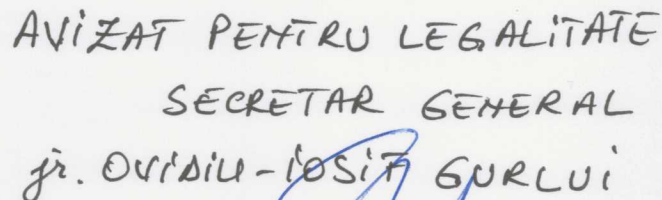 AVIZAT PENTRU LEGALITATE
SECRETAR GENERAL
jr. OVIDIU-IOSIF GURLUI